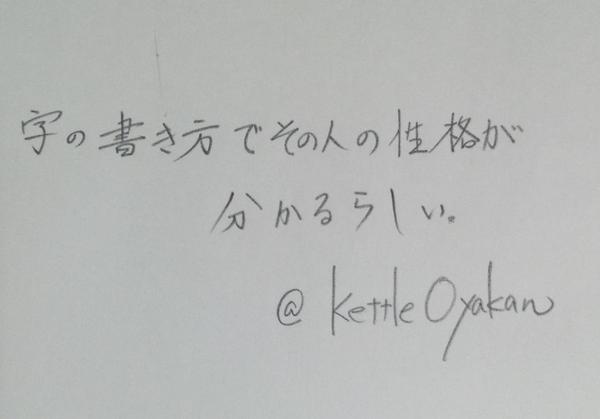 字の書き方でその人の性格が
分かるらしい。
@KettleOyakan